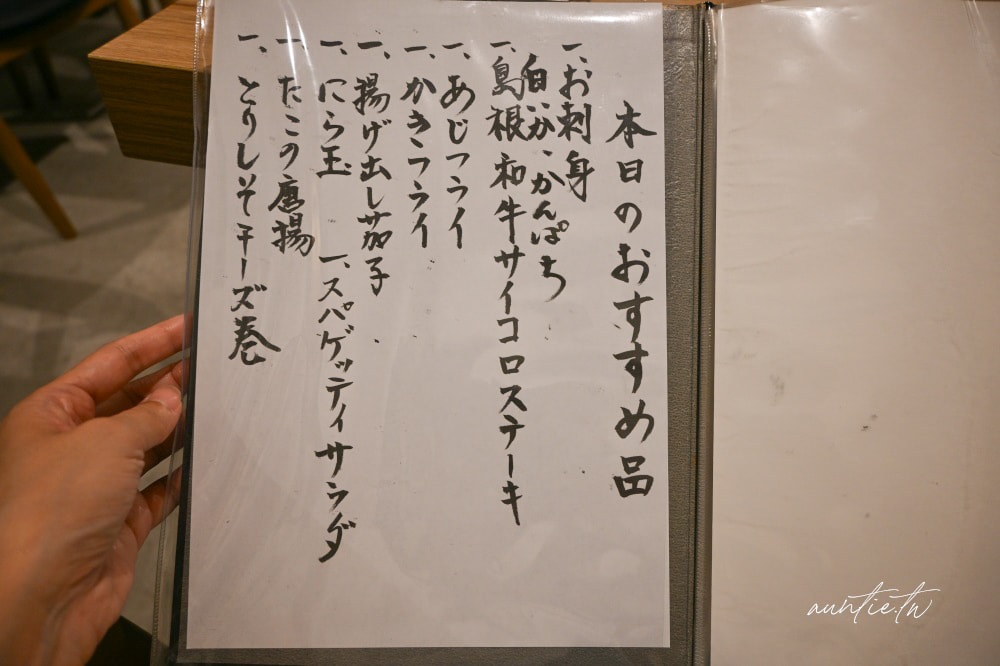 本日のおすすめ品
一、お刺身
白いか、かんぱち
一、島根和牛サイコロステーキ
一、あじフライ
一、かきフライ
一、揚げ出し茄子
一、にら玉 一、スパゲッティサラダ
一、たこの唐揚
一、とりしそチーズ巻
auntie.tw